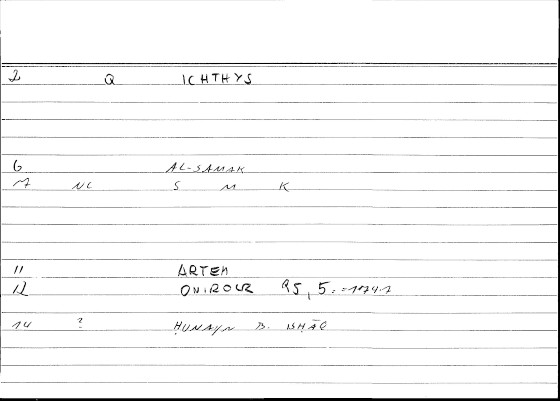 2 Q ICHTHYS
6 AL-SAMAK
7 NL S M K
11 ARTEM
12 ONIROCR 95, 5.
14 ? ḤUNAYN B. ISḤĀQ